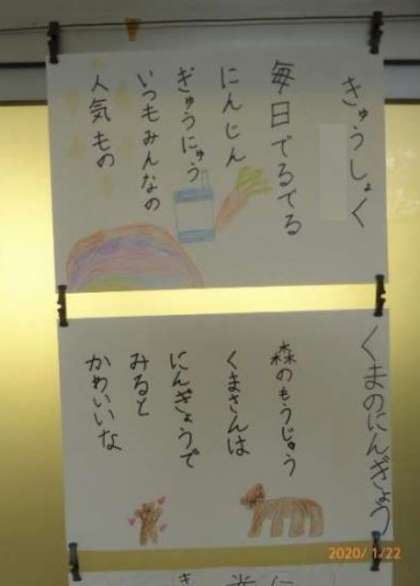 きゅうしょく
毎日でるてる
にんじん
ぎゅうにゅう
いつもみんなの
人気もの
くまのにんぎょう
森のもうじゅう
くまさんは
にんぎょうで
みると
かわいいな
2020/1/22